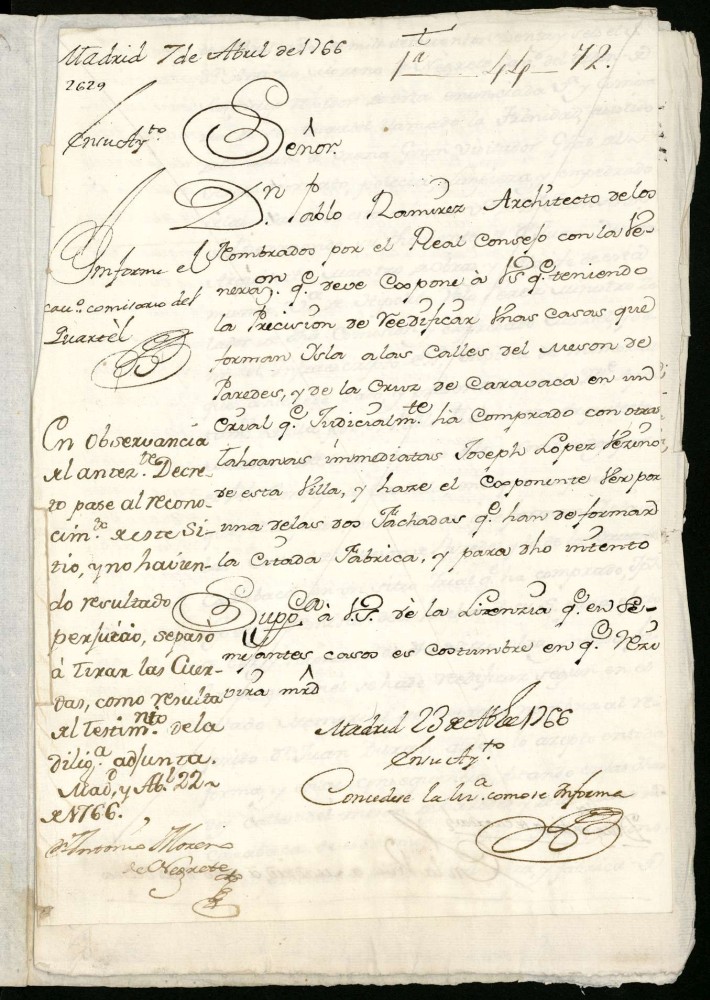 Madrid 7 de Abril de 1766
1ª 44 72.
2629
En su Ayto.
Señor.
Dn. Pablo Ramirez Architecto de los
Nombrados por el Real Consejo con la Ve-
nerazon. q.e deve Expone à VS. q.e teniendo
la Precision de reedificar Unas casas que
forman Ysla a las Calles del Meson de
Paredes, y de la Cruz de Caravaca en un
q.e Judicialmte. ha Comprado con otra
tahoanas immediatas Joseph Lopez
de esta Villa, y hare el Exponente Ver por
una de las dos Fachadas q.e han de formar
la Citada Fabrica, y para dho intento
Suppca. à V.S. dè la Lizenzia q.e en Se-
mejantes casos es Costumbre en q.e Rezi
vira mrd
Informe el
cavo. comisario del
Quartèl
En Observancia
del antezte. Decre-
to pase al recono-
cimto. de este Si-
tio, y no havien-
do resultado
perjuicio, se pasó
à tirar las Cuer-
das, como resulta
del Testimnto. de la
dilig.a adjunta.
Mad, y Abl. 22
de 1766.
Dn. Antonio Moreno
de Negrete
Madrid 23 de Abre 1766
En su Ayto.
Concedese la liza. como se Informa